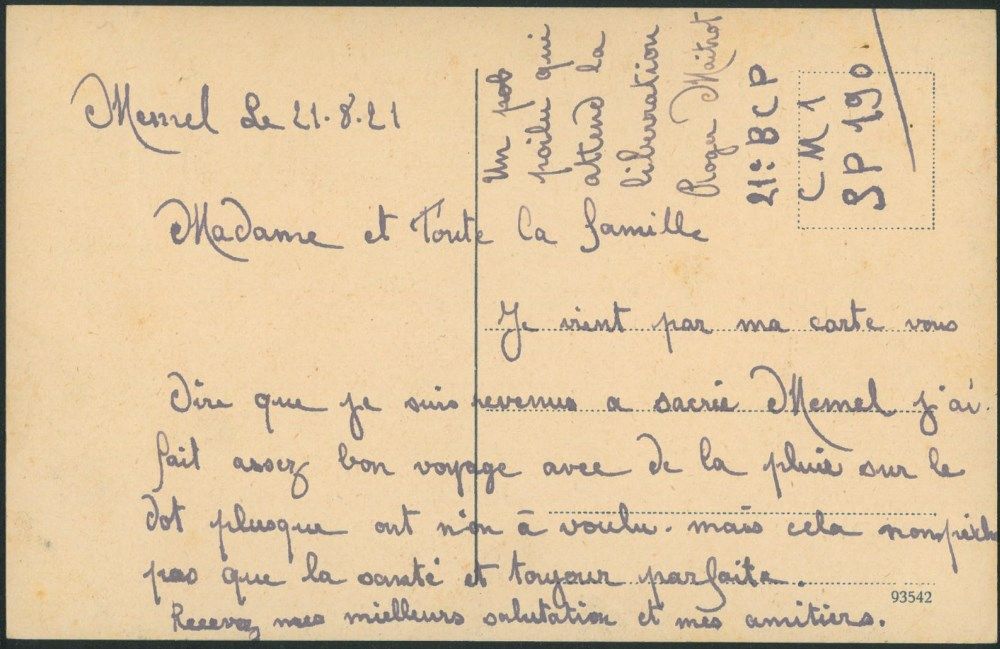 Memel Le 21.8.21
Madame et Toute la famille
Je vient par ma carte vous
dire que je suis revenus a sacrée Memel j'ai
fait assez bon voyage avec de la pluie sur le
dot plusque ont n'on à voulu. mais cela nempêche
pas que la santé et toujour parfaite.
Recevez mes mielleurs salutation et mes amitiers.
Un
poilu qui
attend la
liberration
Roger Maitrot
21e BCP
CM1
SP 190
93542